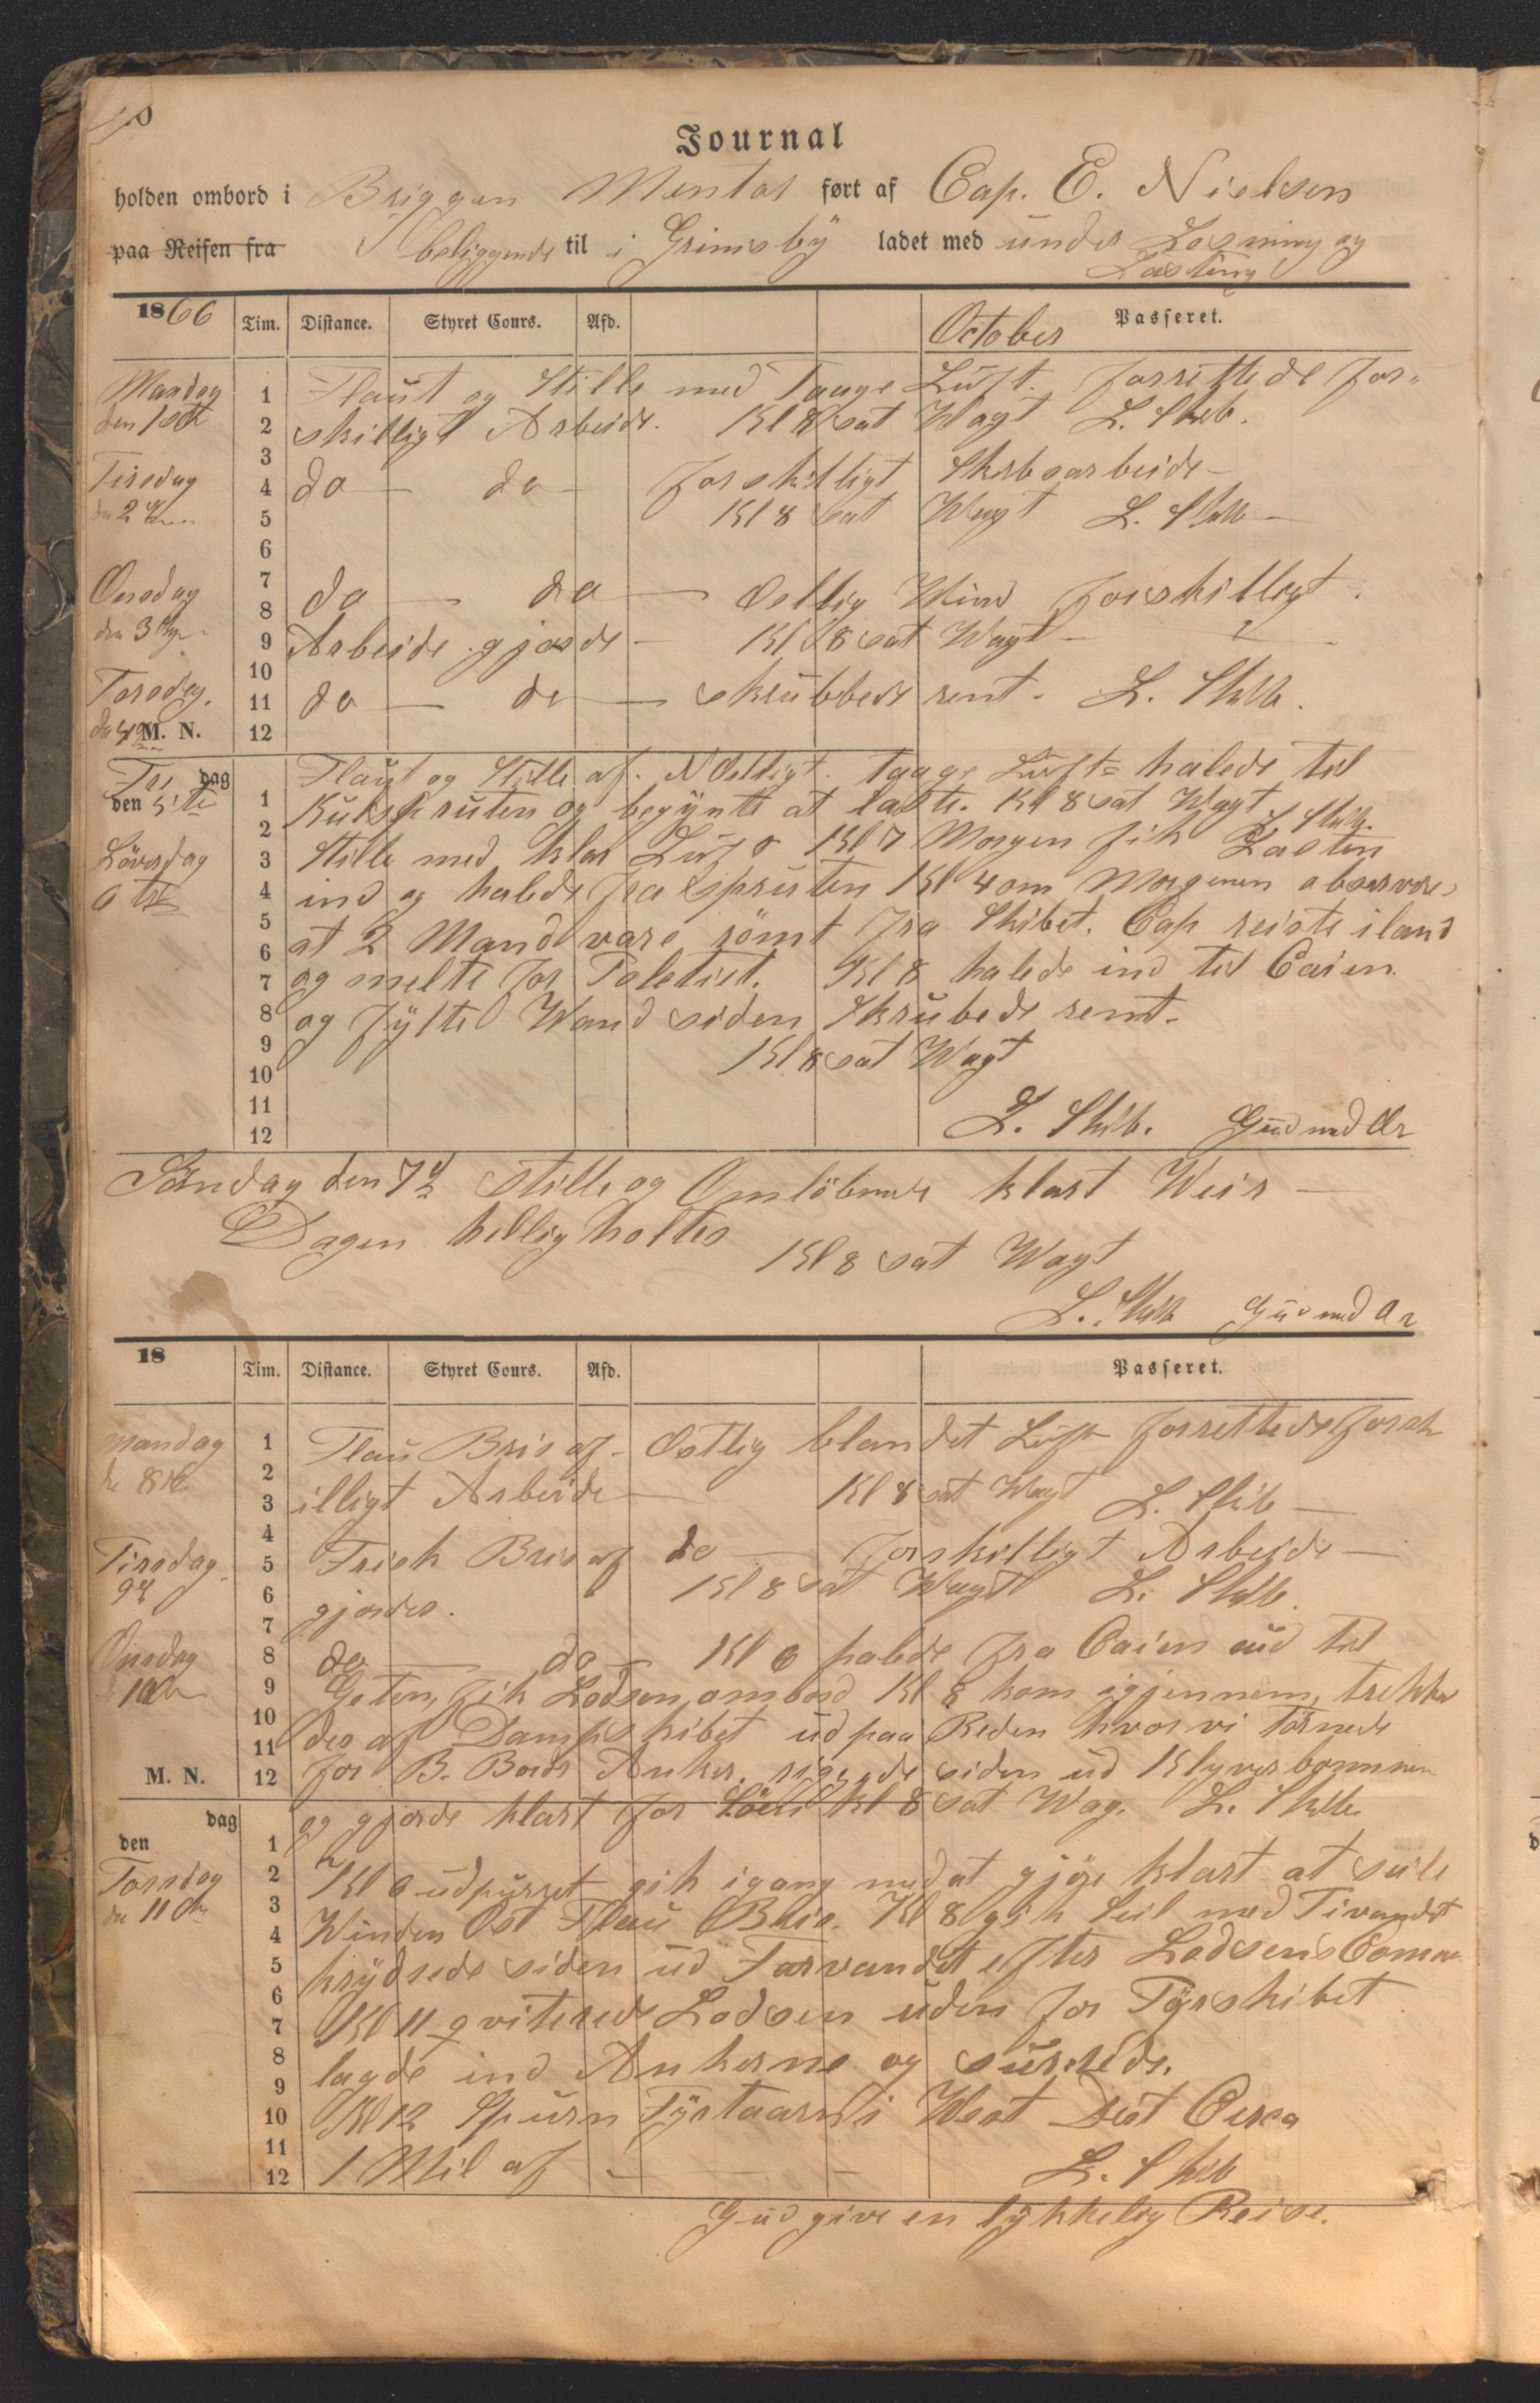 Journal
holden ombord i Briggen Mentor ført af Cap. E. Nielsen
paa Reisen fra beliggende til i Grimsbÿ ladet med under Losning og
Lastning
1866 Tim. Distance. Styret Cours. Afd. October Passeret.
Mandag Flaut og Stille med Taage Luft. forrettede for-
den 1ste skilligt Arbeide. Kl 8 sat Wagt L. Skib.
Tirsdag do — do — forskilligt Skibsarbeide —
den 2 Kl 8 sat Wagt L. Skib —
Onsdag do — do — Ostlig Wind forskilligt
den 3 Arbeide gjorde — Kl 8 sat Wagt —
Torsdag do — do — skrubbede rent. L. Skib.
M. N.
dag Flaut og Stille af. NOstligt. taage Luft = halede til
den 5te Kulspruten og begÿnte at laste. Kl 8 sat Wagt L. Skib.
Lövrdag Stille med klar Luft Kl 7 Morgen fik Lasten
6te ind og halede fra spruten Kl 4 om Morgenen observere
at 2 Mand vare römt fra Skibet. Cap reiste iland
og melte for Poletiet. Kl 8 halede ind til Caien
og fÿlte Wand siden Skrubede rent.
Kl 8 sat Wagt
L. Skib. Gud med Os
Söndag den 7de Stille og Omlöbende klart Weir —
Dagen hellig holtes Kl 8 sat Wagt
L. Skib Gud med Os
18 Tim. Distance. Styret Cours. Afd. Passeret.
Mandag Flau Bris af — Ostlig blandet Luft forrettede forsk
8de illigt Arbeide — Kl 8 sat Wagt L. Skib —
Tirsdag Frisk Bris af do — forskilligt Arbeide —
9de gjordes. Kl 8 sat Wagt L. Skib.
Onsdag do — do — Kl 6 halede fra Caien ud til
10de Geten, fik Lodsen ombord Kl 8 kom igjennem, trekke
des af Dampskibet ud paa Reden hvor vi Törnede
M. N. for B. Bords Anker. riggede siden ud Klyverbommen
dag og gjorde klart for Söen Kl 8 sat Wag. L. Skib
den
Torsdag Kl 6 udpurret gik igang med at gjöre klart at seile
den 11te Winden Ost Flau Bris. Kl 8 gik Seil med Tivandet
krÿdsede siden ud Farvandet efter Lodsens Comm
Kl 11 qviterede Lodsen uden for Fÿrskibet
lagde ind Ankerne og surrede.
Kl 12 Spurn Fÿrtaarn i West Dist Circa
1 Mil af — L. Skib
Gud give en lÿkkelig Reise.